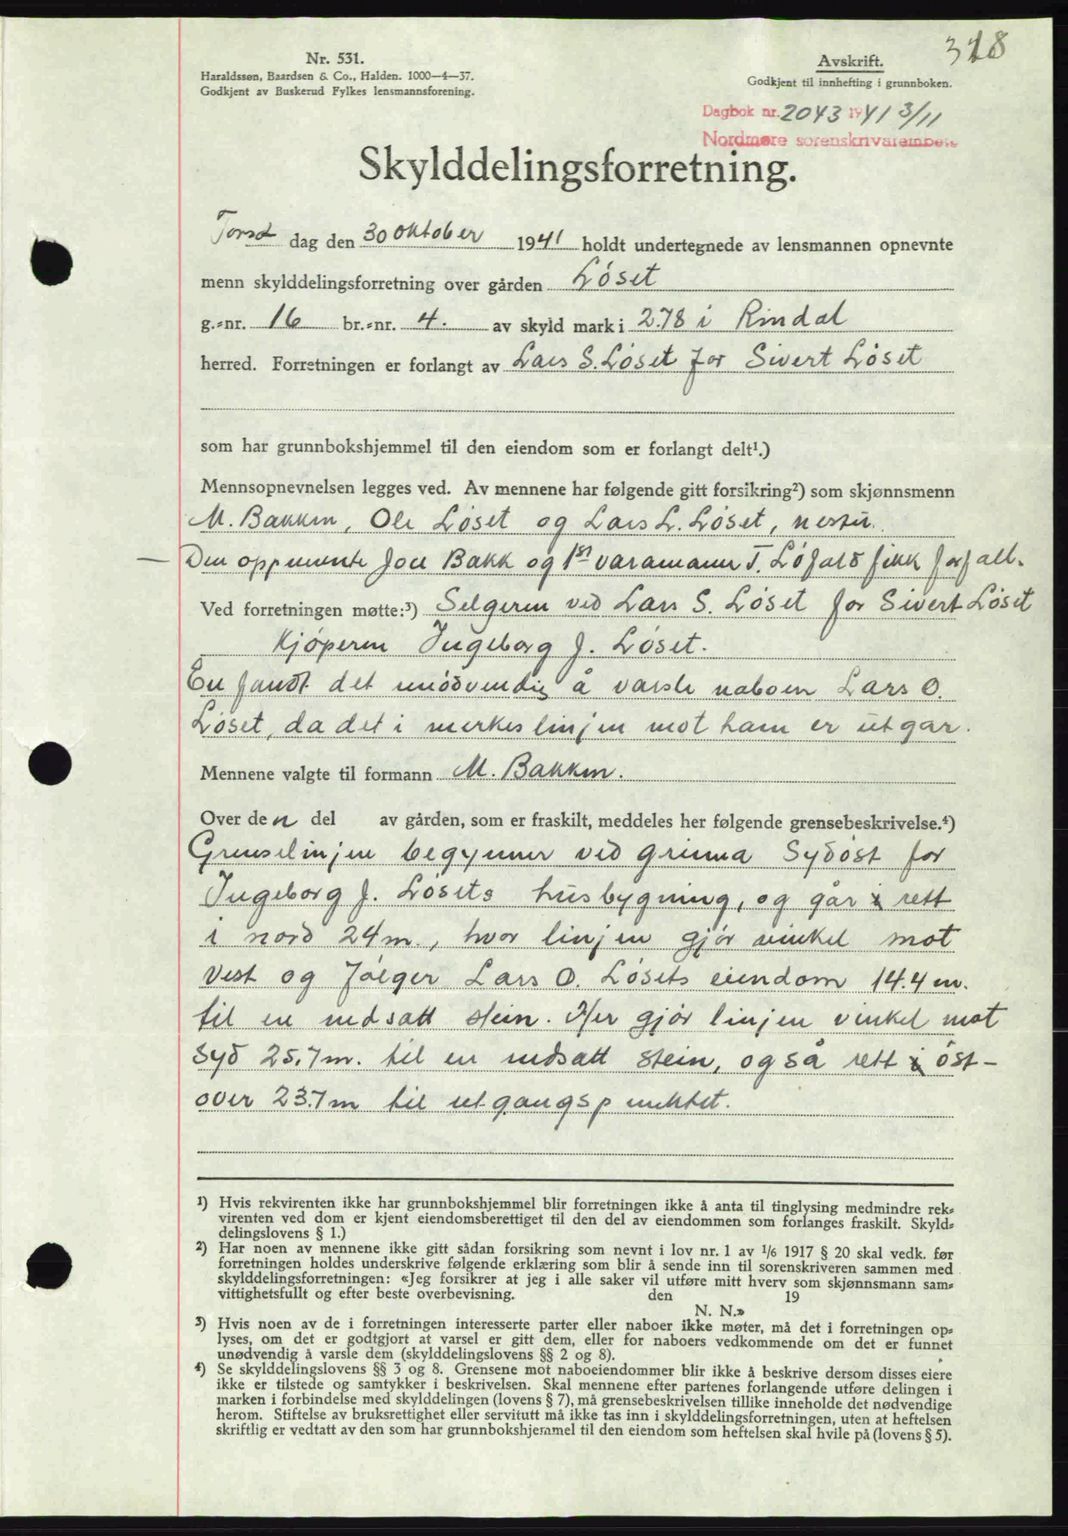 318
Nr. 531.
Haraldssøn, Baardsen & Co., Halden. 1000—4—37.
Godkjent av Buskerud Fylkes lensmannsforening.
Avskrift.
Godkjent til innhefting i grunnboken.
Dagbok nr. 2043 1941 3/11
Nordmøre sorenskriverembete
Skylddelingsforretning.
Torsdag den 30 oktober 1941 holdt undertegnede av lensmannen opnevnte
menn skylddelingsforretning over gården Löset
g.=nr. 16 br.=nr. 4. av skyld mark i 2.78 i Rindal
herred. Forretningen er forlangt av Lars S. Löset for Sivert Löset
som har grunnbokshjemmel til den eiendom som er forlangt delt¹.)
Mennsopnevnelsen legges ved. Av mennene har følgende gitt forsikring²) som skjønnsmenn
M. Bakken, Ole Löset og Lars L. Löset, nestu.
— Den oppnevnte Joe Bakk og 1ste varamann T. Löfald fikk forfall.
Ved forretningen møtte:³) Selgeren ved Lars S. Löset for Sivert Löset
Kjöperen Ingeborg J. Löset.
En fandt det unödvendig å varsle naboen Lars O.
Löset, da det i merkeslinjen mot ham er utgar.
Mennene valgte til formann M. Bakken.
Over den del av gården, som er fraskilt, meddeles her følgende grensebeskrivelse.⁴)
Grenselinjen begynner ved grinna Sydöst for
Ingeborg J. Lösets husbygning, og går i rett
i nord 24 m., hvor linjen gjör vinkel mot
vest og fölger Lars O. Lösets eiendom 14.4 m.
til en nedsatt stein. Her gjör linjen vinkel mot
Syd 25.7 m. til en nedsatt stein, og så rett i öst-
over 23.7 m til utgangspunktet.
¹) Hvis rekvirenten ikke har grunnbokshjemmel blir forretningen ikke å anta til tinglysing medmindre rek=
virenten ved dom er kjent eiendomsberettiget til den del av eiendommen som forlanges fraskilt. Skyld=
delingslovens § 1.)
²) Har noen av mennene ikke gitt sådan forsikring som nevnt i lov nr. 1 av ¹/₆ 1917 § 20 skal vedk. før
forretningen holdes underskrive følgende erklæring som blir å sende inn til sorenskriveren sammen med
skylddelingsforretningen: «Jeg forsikrer at jeg i alle saker vil utføre mitt hverv som skjønnsmann sam=
vittighetsfullt og efter beste overbevisning. den 19
N. N.»
³) Hvis noen av de i forretningen interesserte parter eller naboer ikke møter, må det i forretningen op=
lyses, om det er godtgjort at varsel er gitt dem, eller for naboers vedkommende om det er funnet
unødvendig å varsle dem (skylddelingslovens §§ 2 og 8).
⁴) Se skylddelingslovens §§ 3 og 8. Grensene mot naboeiendommer blir ikke å beskrive dersom disses eiere
ikke er tilstede og samtykker i beskrivelsen. Skal mennene efter partenes forlangende utføre delingen i
marken i forbindelse med skylddelingen (lovens § 7), må grensebeskrivelsen tillike inneholde det nødvendige
herom. Stiftelse av bruksrettighet eller servitutt må ikke tas inn i skylddelingsforretningen, uten at heftelsen
skriftlig er vedtatt av den som har grunnbokshjemmel til den eiendom som heftelsen skal hvile på (lovens § 5).